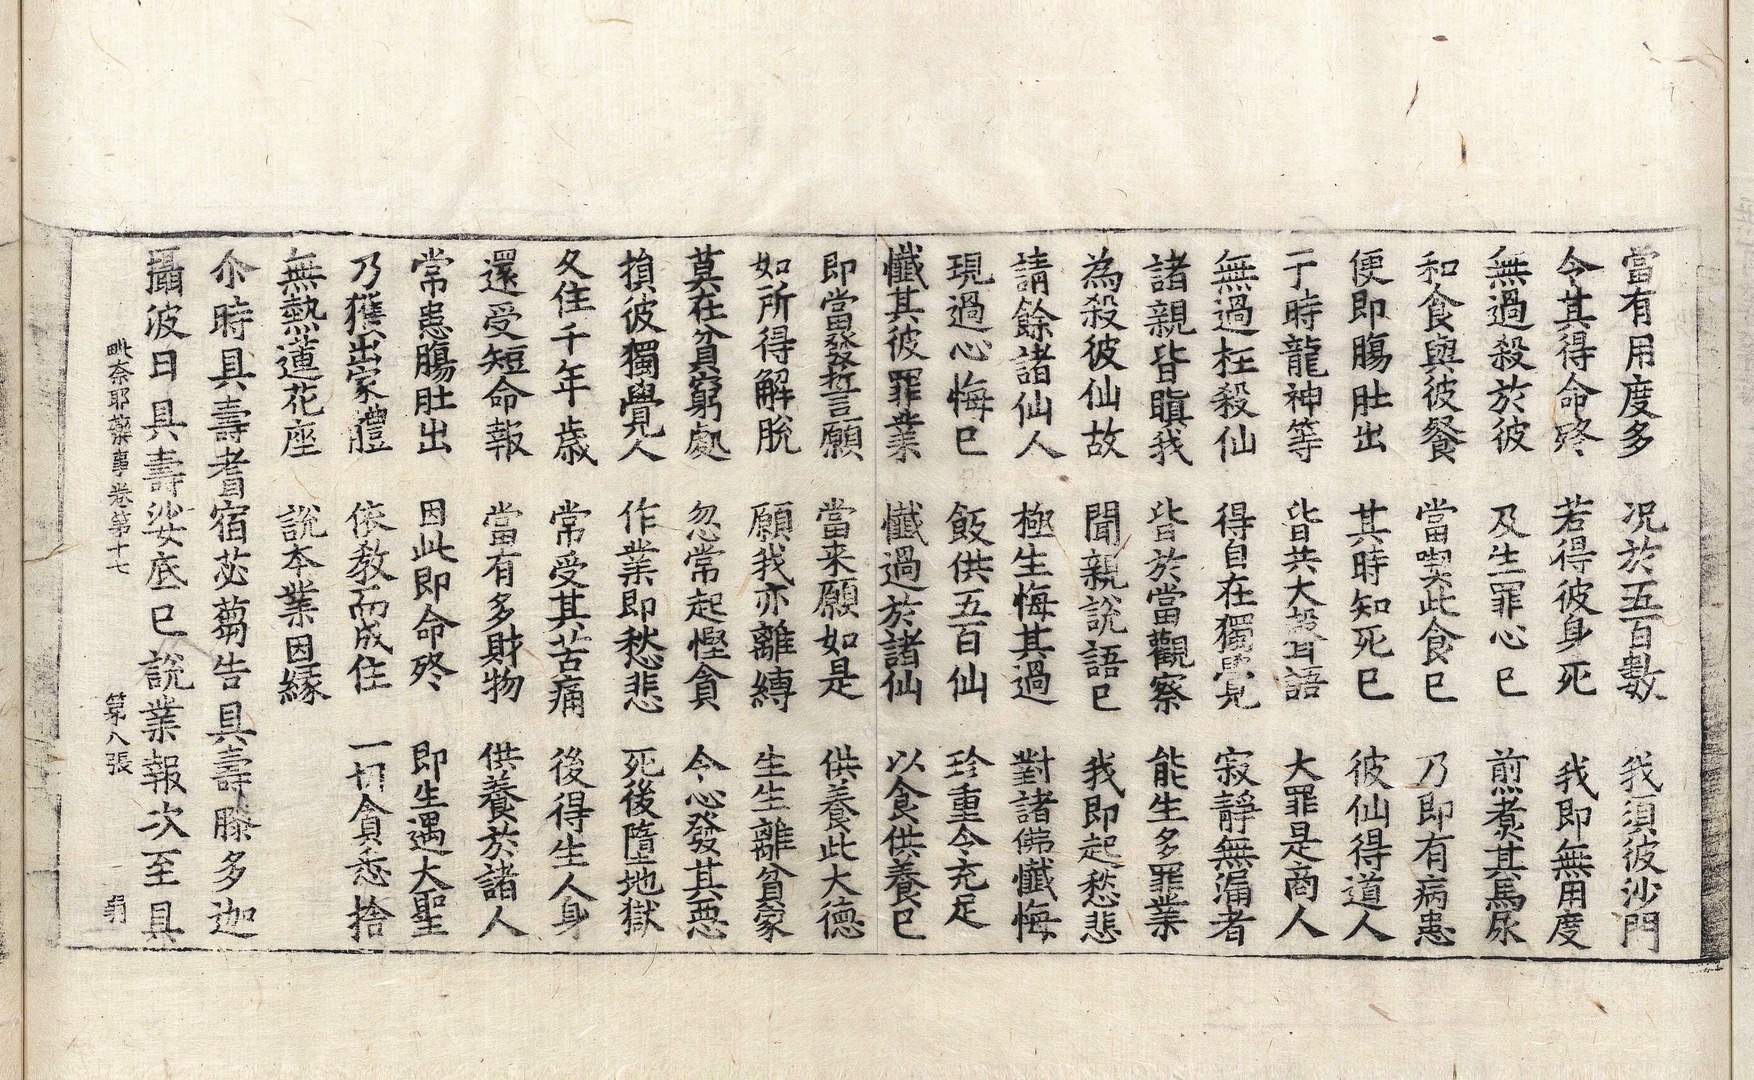 當有用度多　況於五百數　我須彼沙門
令其得命終　若得彼身死　我即無用度
無過殺於彼　及生罪心已　煎煮其馬尿
和食與彼餐　當喫此食已　乃即有病患
便即膓肚出　其時知死已　彼仙得道人
于時龍神等　皆共大叫語　大罪是商人
無過枉殺仙　得自在獨覺　寂靜無漏者
諸親皆瞋我　皆於當觀察　能生多罪業
為殺彼仙故　聞親說語已　我即起愁悲
請餘諸仙人　極生悔其過　對諸佛懺悔
現過心悔已　飯供五百仙　珍重令充足
懺其彼罪業　懺過於諸仙　以食供養已
即當發誓言願　當来願如是　供養此大德
如所得解脫　願我亦離縛　生生離貧家
莫在貧窮處　忽常起慳貪　令心發其惡
損彼獨覺人　作業即愁悲　死後墮地獄
久住千年歲　常受其苦痛　後得生人身
還受短命報　當有多財物　供養於諸人
常患膓肚出　因此即命終　即生遇大聖
乃獲出家禮　依教而成住　一切貪悉捨
無熱蓮花座　說本業因緣
尒時具壽耆宿苾蒭告具壽滕多迦
攝波曰具壽娑底已說業報次至具
毗奈耶藥事卷第十七　第八張　翦